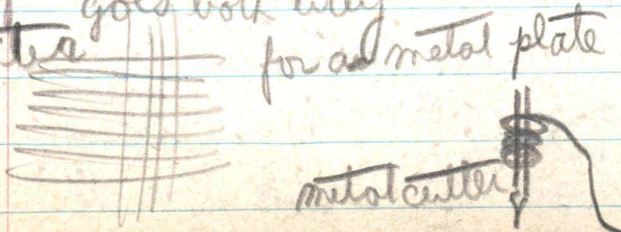 goes both way
for a metal plate
metal cutter